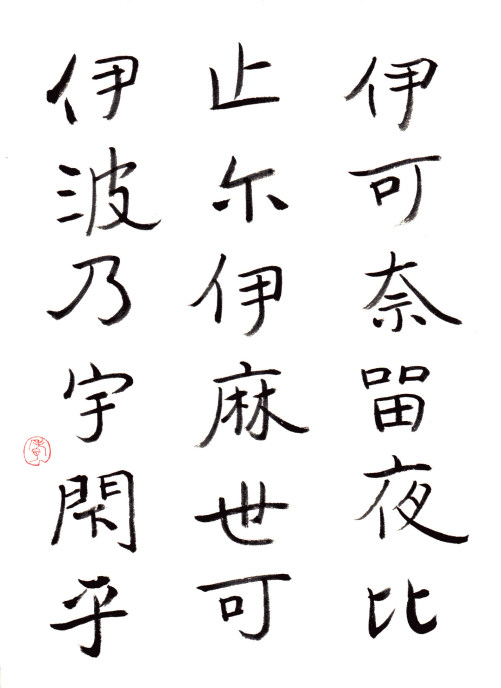 伊可奈㽞夜比
止尓伊麻世可
伊波乃宇閇乎